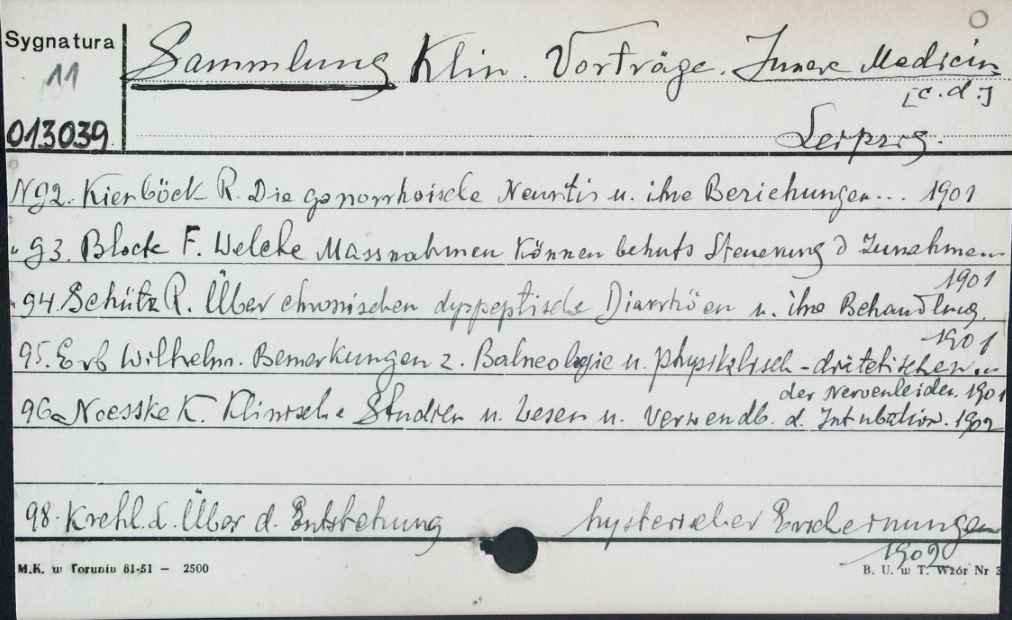 Sygnatura
11
013039.
Sammlung Klin. Vorträge. Innere Medicin
[c.d.]
Leipzig.
N92. Kienböck R. Die gonorrhoische Neuritis u. ihre Beziehungen... 1901
" 93. Block F. Welche Massnahmen Können behufs Steuerung d Zunahme...
1901
" 94. Schütz R. Über chronischen dyspeptische Diarrhöen u. ihre Behandlung.
1901
95. Erb Wilhelm. Bemerkungen z. Balneologie u. physikalisch-diätetischen...
der Nervenleiden. 1901
96. Noesske K. Klinische Studien u. Wesen u. Verwendb. d. Intubation. 1902
98. Krehl. L. Über d. Entstehung hysterischer Erscheinungen
1902
M.K. w Toruniu 81-51 — 2500
B. U. w T. Wzór Nr